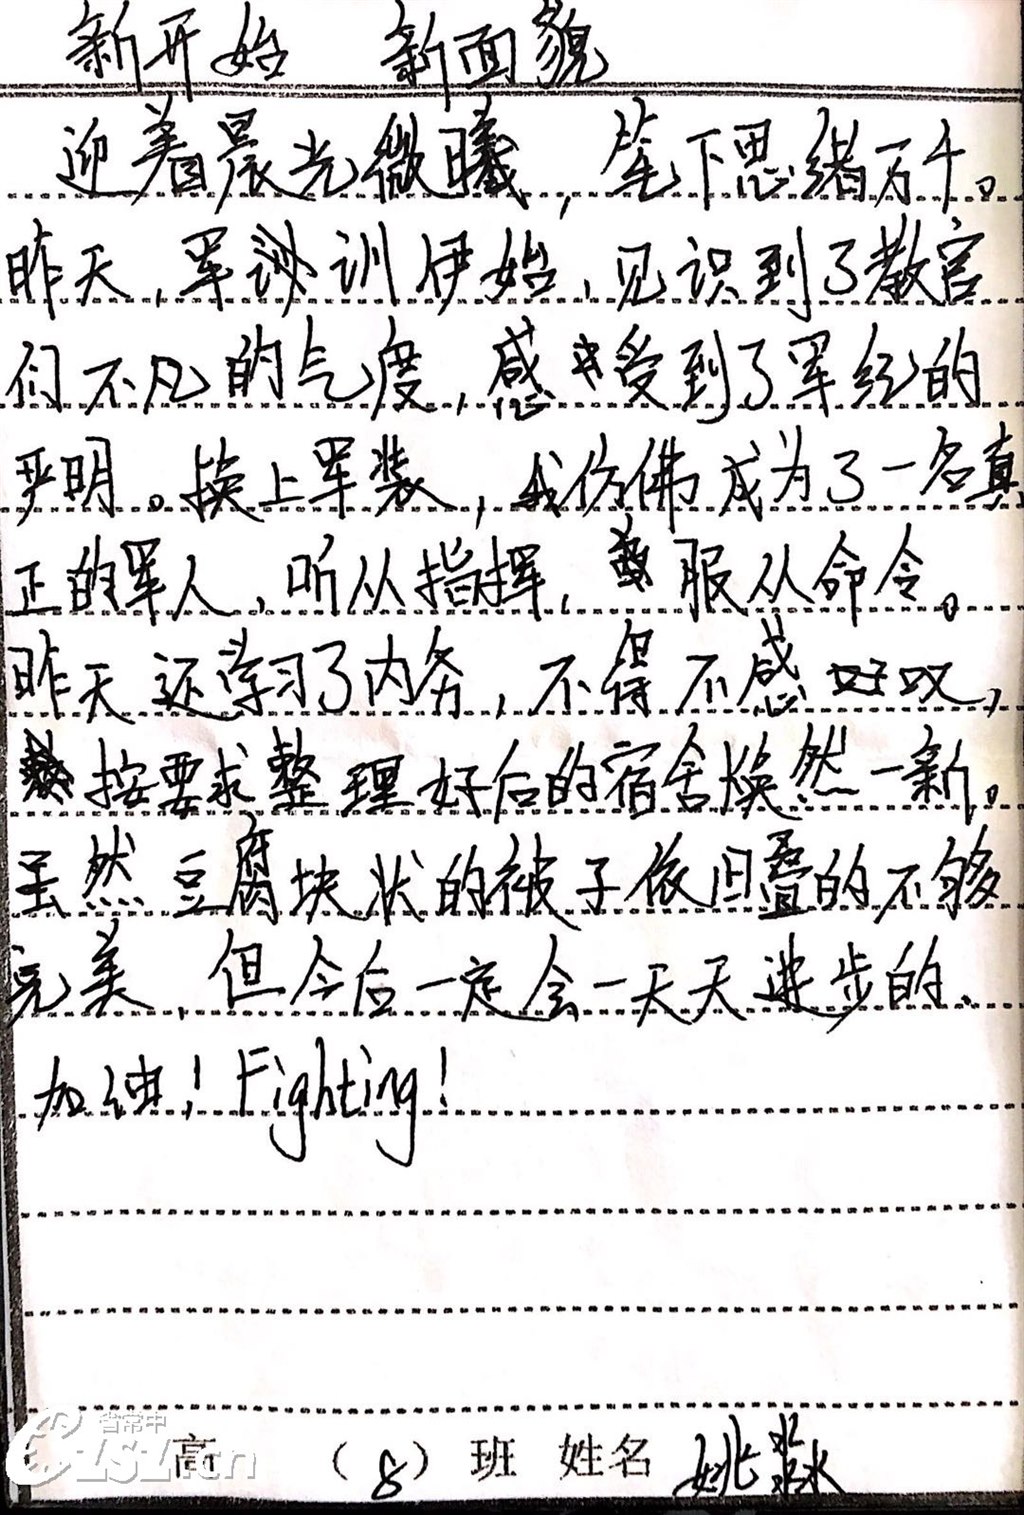 新开始 新面貌
迎着晨光微曦，笔下思绪万千。
昨天，军训伊始，见识到了教官
们不凡的气度，感受到了军纪的
严明。换上军装，我仿佛成为了一名真
正的军人，听从指挥，服从命令。
昨天还学习了内务，不得不感叹，
按要求整理好后的宿舍焕然一新。
虽然豆腐块状的被子依旧叠的不够
完美，但今后一定会一天天进步的、
加油！Fighting！
高 （8）班 姓名 姚淼
省常中